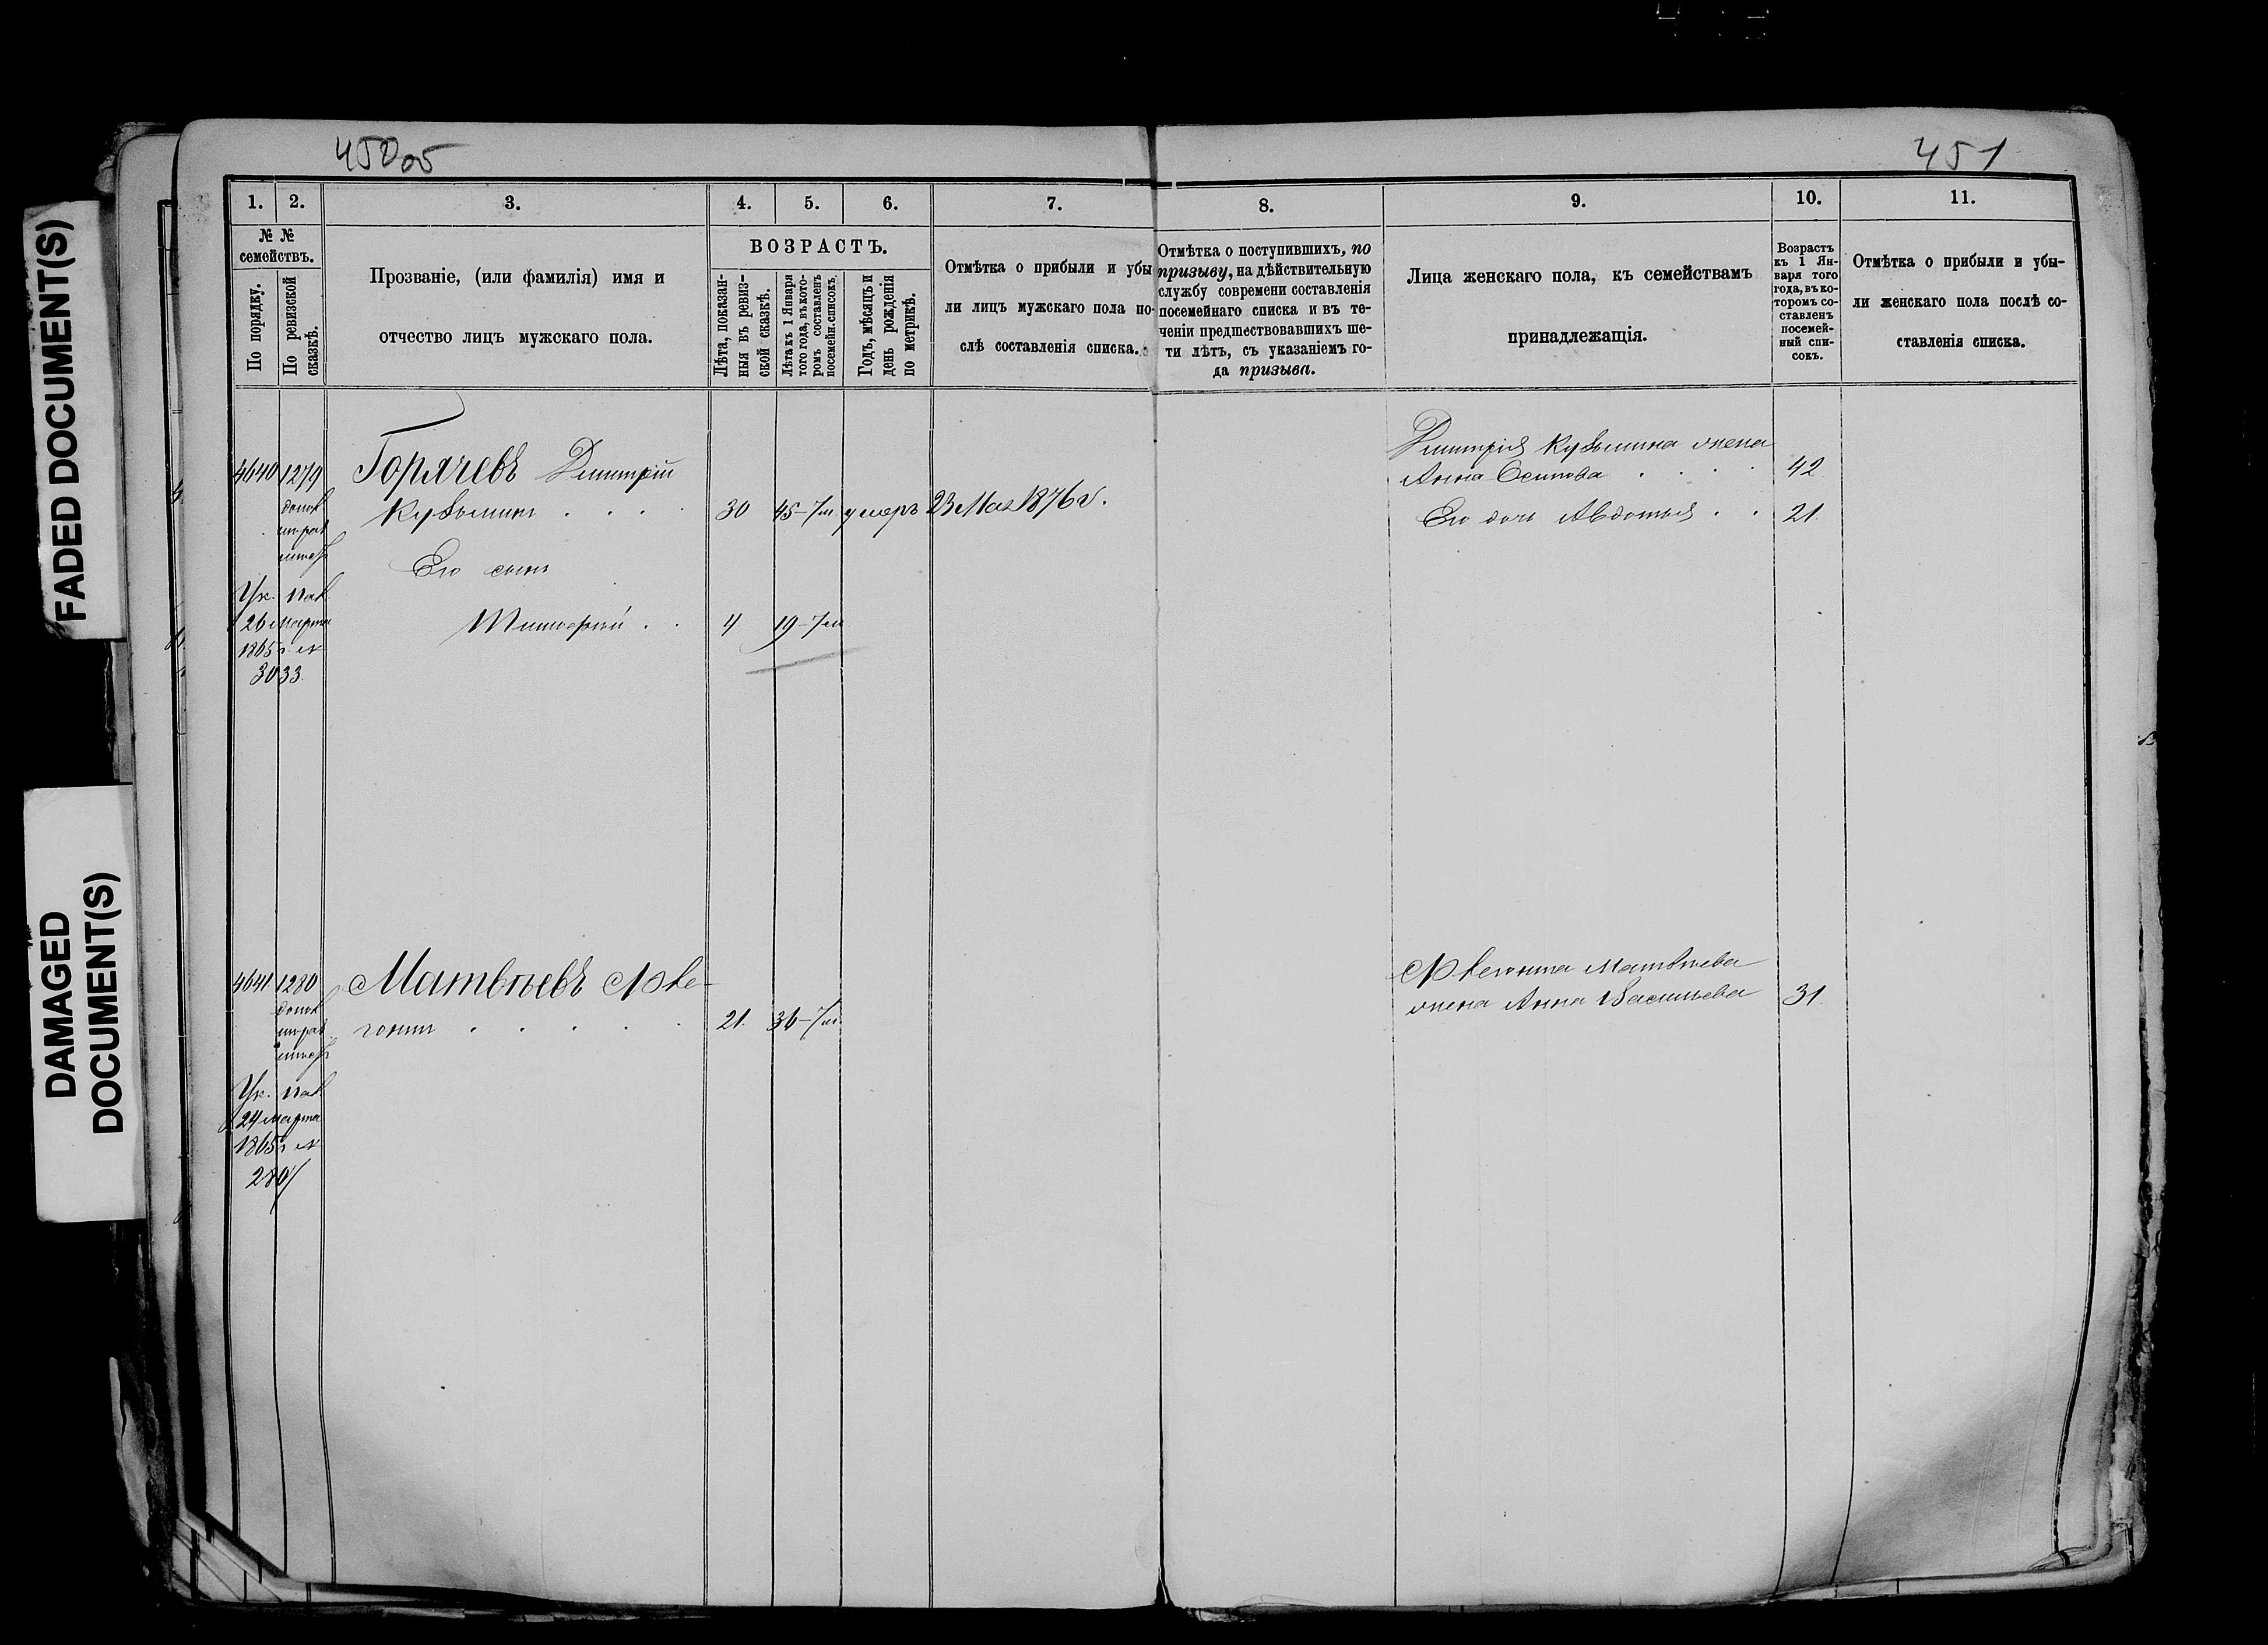 FADED DOCUMENT(S)
DAMAGED
DOCUMENT(S)
450об
451
1.
2.
3.
4.
5.
6.
7.
8.
9.
10.
11.
№ №
семействъ.
По порядку.
По ревизской
сказкѣ.
Прозваніе, (или фамилія) имя и
отчество лицъ мужскаго пола.
ВОЗРАСТЪ.
Лѣта, показан-
ныя въ ревиз-
ской сказкѣ.
Лѣта къ 1 Января
того года, въ кото-
ромъ составленъ
посемейн. списокъ.
Годъ, мѣсяцъ и
день рожденія
по метрикѣ.
Отмѣтка о прибыли и убы
ли лицъ мужскаго пола по-
слѣ составленія списка.
Отмѣтка о поступившихъ, по
призыву, на дѣйствительную
службу современи составленія
посемейнаго списка и въ те-
ченіи предшествовавшихъ ше-
ти лѣтъ, съ указаніемъ го-
да призыва.
Лица женскаго пола, къ семействамъ
принадлежащія.
Возрастъ
къ 1 Ян-
варя того
года, въ ко-
торомъ со-
ставленъ
посемей-
ный спи-
сокъ.
Отмѣтка о прибыли и убы-
ли женскаго пола послѣ со-
ставленія списка.
4640 1279 Горячевъ Димитрій
Кузьминъ 30 45-7м. умеръ 23 Мая 1876 г.
Его сынъ
Тимофей 4 19-7м
26 Марта
1865 г. №
3033.
Димитрія Кузьмина жена
Анна Осипова 42
Его дочь Авдотья 21
4641 1280 Матвѣевъ Фле-
гонтъ 21. 36-7м.
24 Марта
1865 г. №
Флегонта Матвѣева
жена Анна Васильева 31.